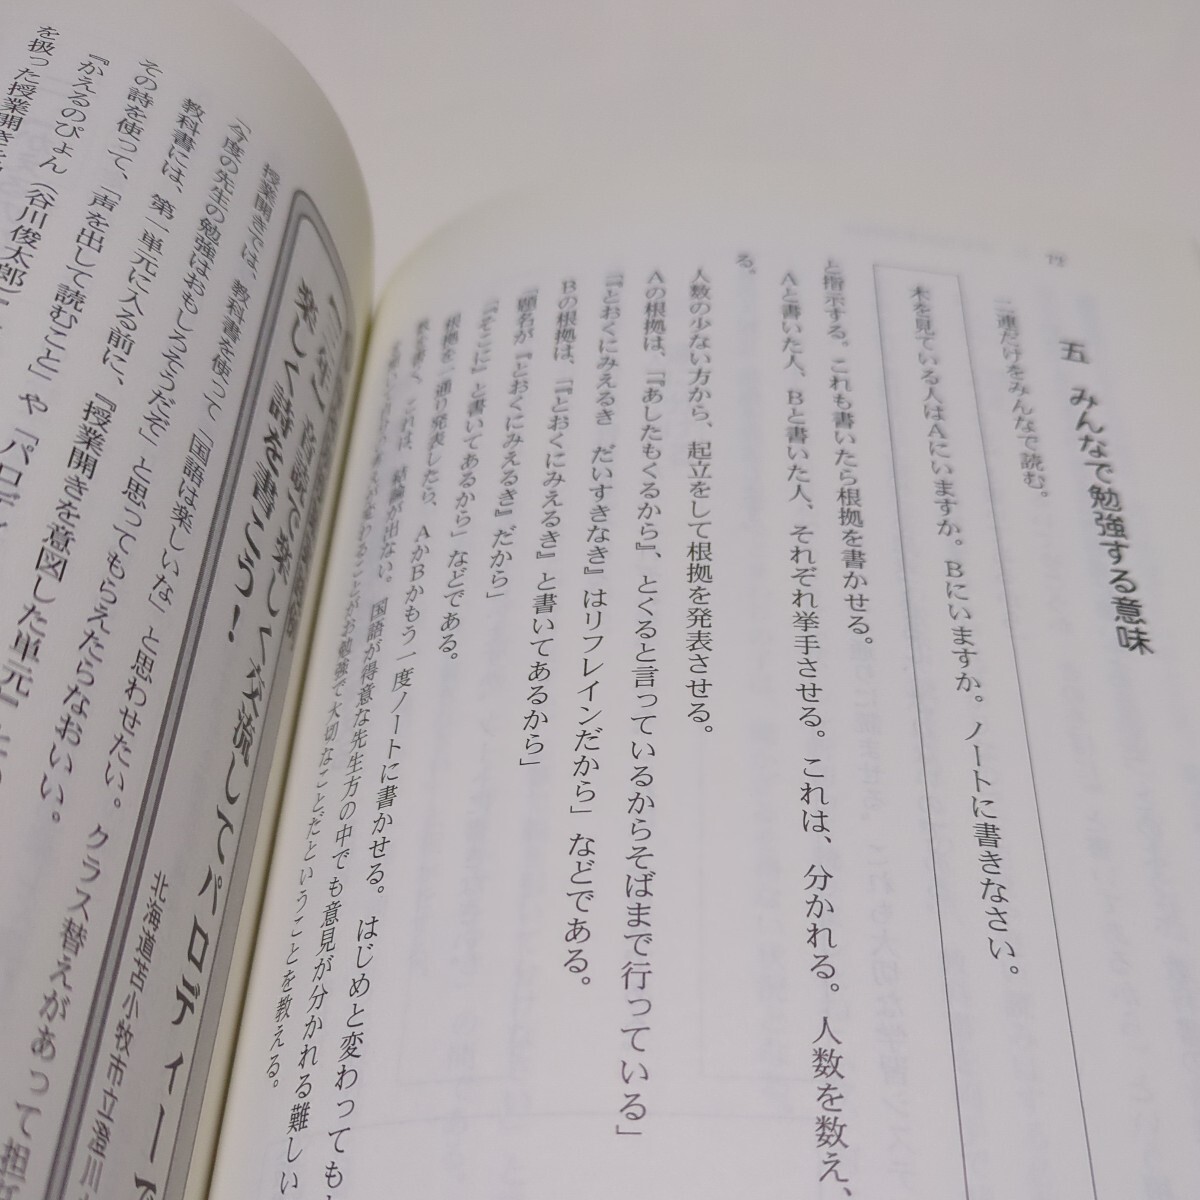 五　みんなで勉強する意味
二連だけをみんなで読む。
木を見ている人はAにいますか。Bにいますか。ノートに書きなさい。
と指示する。これも書いたら根拠を書かせる。
Aと書いた人、Bと書いた人、それぞれ挙手させる。これは、分かれる。人数を数え、
る。
人数の少ない方から、起立をして根拠を発表させる。
Aの根拠は、「『あしたもくるから』、とくると言っているからそばまで行っている」
「『とおくにみえるき　だいすきなき』はリフレインだから」などである。
Bの根拠は、「『とおくにみえるき』と書いてあるから」
「題名が『とおくにみえるき』だから」
「『そこに』と書いてあるから」などである。
根拠を一通り発表したら、AかBかもう一度ノートに書かせる。はじめと変わっても
これは、結論が出ない。国語が得意な先生方の中でも意見が分かれる難しい
わることがお勉強で大切なことだということを教える。
楽しく詩を書こう!
楽しく交流してパロディーで
北海道苫小牧市立澄川
授業開きでは、教科書を使って「国語は楽しいな」と思わせたい。クラス替えがあって担
「今度の先生の勉強はおもしろそうだぞ」と思ってもらえたらなおいい。
教科書には、第一単元に入る前に、『授業開きを意図した単元』
その詩を使って、「声を出して読むこと」や「パロディ
『かえるのぴょん（谷川俊太郎）
を扱った授業開き